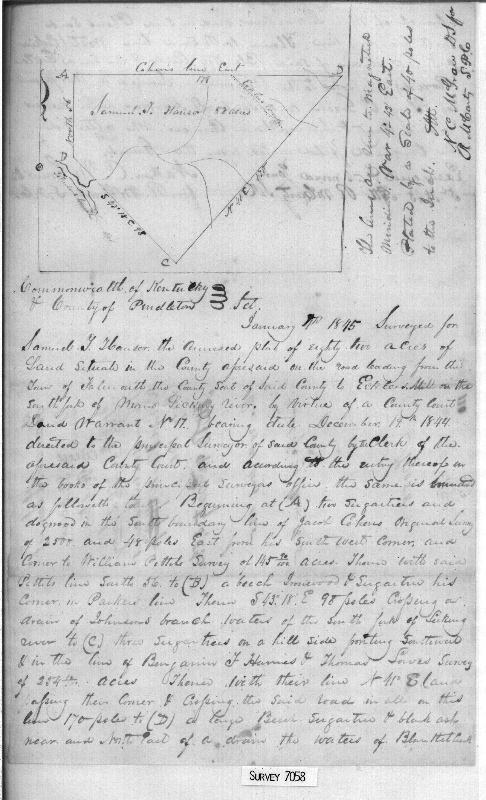 A
Cohons line East
178
D
Samuel T. Hanson 82 acres
South 56
B
S 43° 18' E 98
N 41 E 170
C
The lines are run to Magnetical
Meridian Var 4° 45' East.
Platted by a Scale of 40 poles
to the Inch.
N C McGraw DS for
A McCarty S.P.C
Commonwealth of Kentucky
& County of Pendleton Sct
January 4th 1845 Surveyed for
Samuel T. Hanson the annexed plat of eighty two acres of
Land Situate in the County aforesaid on the road leading from the
Town of Falmouth the County Seat of said County to Mill on the
South fork of Licking river, by virtue of a County Court
Land Warrant No 17. bearing date December 14th 1844
directed to the principal Surveyor of said County by the Clerk of the
aforesaid County Court. and according to the entry thereof on
the books of the principal Surveyors office. the same is bounded
as followeth to Beginning at (A) two Sugartrees and
dogwood in the South boundary line of Jacob Cohons Original Survey
of 2500 and 48 poles East from his South West Corner, and
Corner to William Pettits Survey of 145 acres. Thence with said
Pettits line South 56. to (B) a beech Ironwood & Sugartree his
Corner in Parkers line Thence S 43° 18' E 98 poles Crossing a
drain of Johnsons branch waters of the South fork of Licking
river to (C) three Sugartrees on a hill side
& in the line of Benjamin F & Thomas Survey
of acres Thence with their line N 41° E
passing their Corner & Crossing the said road in all on this
line 170 poles to (D) a large Beech Sugartree & black ash
near and North East of a drain the waters of
SURVEY 7058